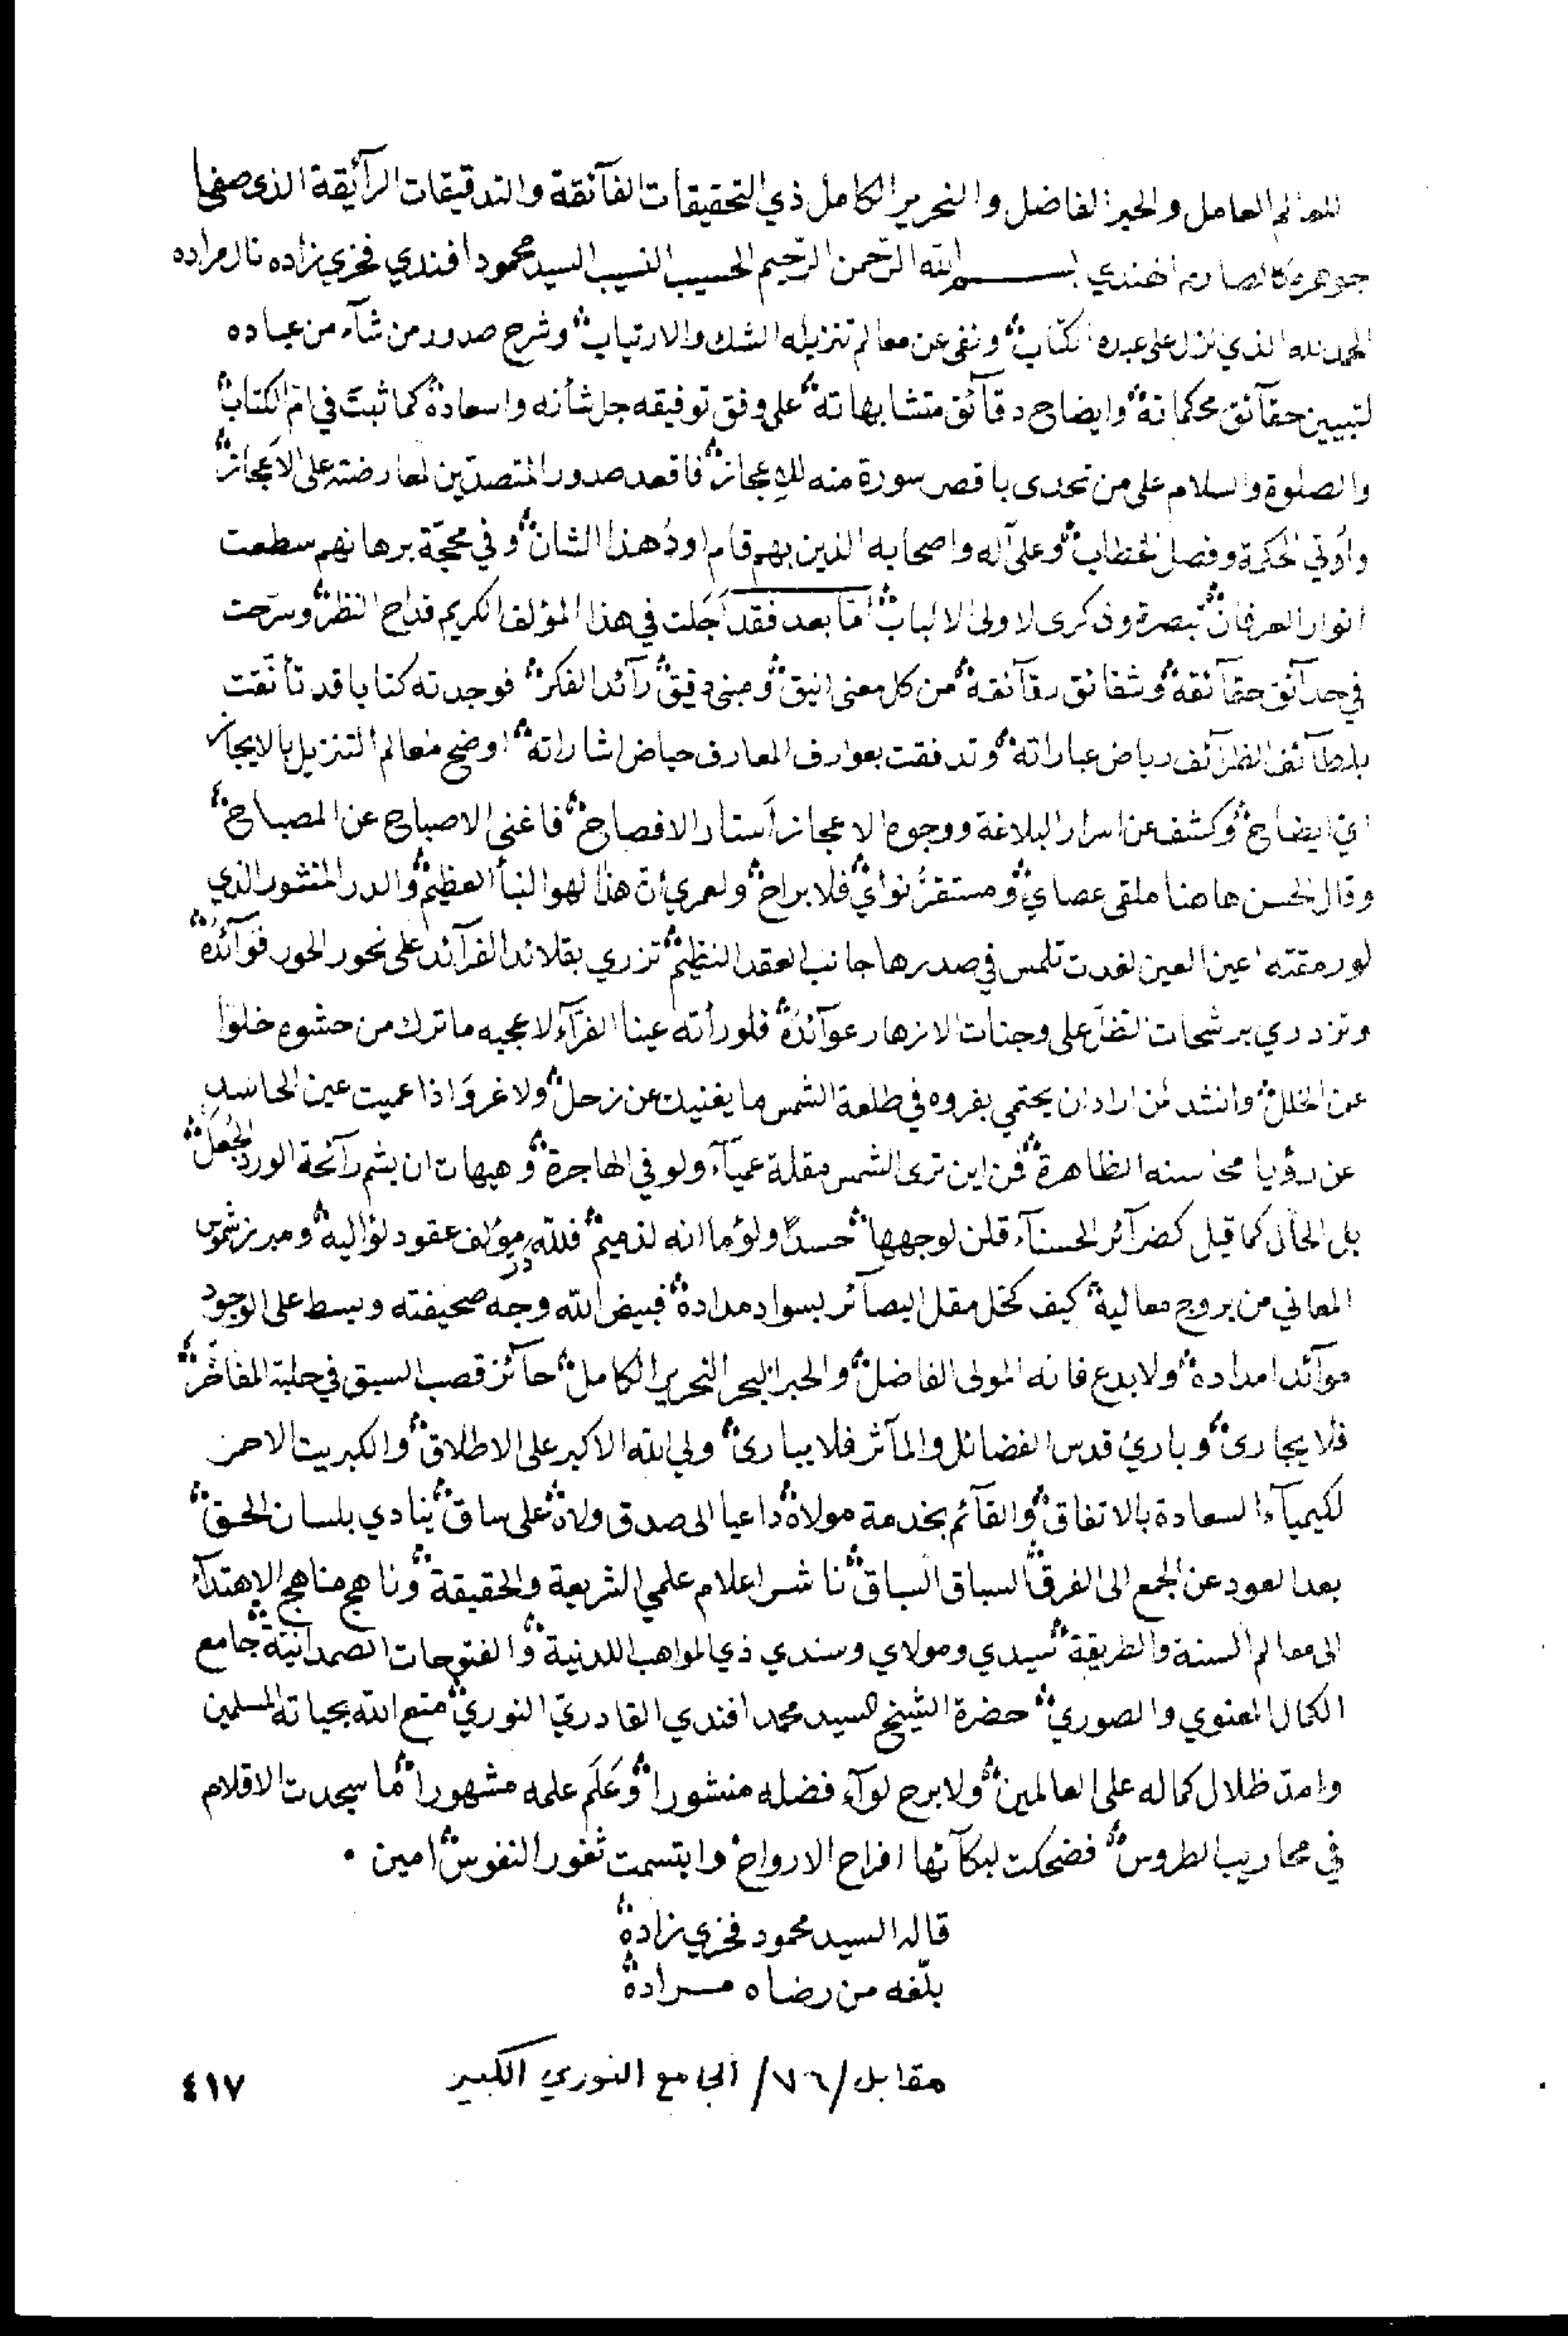 للعالم العامل والحبر الفاضل والنحرير الكامل ذي التحقيقات الفآئقة والتدقيقات الرآئيقة الذي صفا
جوهره كالصارم الهندي بسم الله الرّحمن الرّحيم الحسيب النسيب السيد محمود افندي فخري زاده نال مراده
الحمد لله الذي نزل على عبده الكتاب ونفى عن معالم تنزيله الشك والارتياب وشرح صدور من شآء من عباده
لتبيين حقآئق محكماته وايضاح دقآئق متشابهاته على وفق توفيقه جل شأنه واسعاده كما ثبت في امّ الكتاب
والصلوة والسلام على من تحدى باقصر سورة منه للاعجاز فاقعد صدور المتصدّين لمعارضته على الاَعجاز
وأوتي الحكمة وفصل الخطاب وعلى آله واصحابه الذين بهم قام اودُ هذا الشان وفي محجّة برهانهم سطعت
انوار العرفان تبصرة وذكرى لاولى الالباب امّا بعد فقد اَجَلت في هذا المؤلف الكريم قداح النظر وسرّحت
في حدآئق حقآئقه وشقائق رقآئقه من كل معنى انيق ومبنى دقيق رآئد الفكر فوجدته كتابا قد تأنّقت
بلطآئف الظرآئف رياض عباراته وتدفقت بعوارف المعارف حياض اشاراته اوضح معالم التنزيل بالايجاز
اي ايضاح وكشف عن اسرار البلاغة ووجوه الاعجاز استار الافصاح فاغنى الاصباح عن المصباح
وقال الحسن هاهنا ملقى عصاي ومستقرُّ نواي فلا براح ولعمري ان هذا لهو النبأ العظيم والدر المنثور الذي
لو رمقته اعين العين لغدت تلمس في صدرها جانب العقد النظيم تزري بقلائد الفرآئد على نحور الحور فوآئده
وتزدري برشحات الطَّل على وجنات الازهار عوآئده فلو رأته عينا الفرّآء لاعجبه ما ترك من حشوه خلوا
عن الخلل وانشد من اراد ان يحتمي بفروه في طلعة الشمس ما يغنيك عن زحل ولا غروَ اذا عميت عين الحاسد
عن رؤيا محاسنه الظاهرة فمن اين ترى الشمس مقلة عميآء ولو في الهاجرة وهيهات ان يشم رآئحة الورد الجُعَل
بل الحال كما قيل كضرآئر الحسنآء قلن لوجهها حسدًا ولؤما انه لذميم فللّه در مؤلف عقود لؤاليه ومبرز شموس
المعاني من بروج معاليه كيف كحّل مقل البصآئر بسواد مداده فبيض الله وجه صحيفته وبسط على الوجود
موآئد امداده ولا بدع فانه المولى الفاضل والحبر البحر النحرير الكامل حآئز قصب السبق في حلبة المفاخر
فلا يجارى وباريء قدس الفضائل والمآثر فلا يبارى ولي الله الاكبر على الاطلاق والكبريت الاحمر
لكيميآء السعادة بالاتفاق والقآئم بخدمة مولاه داعيا الى صدق ولاه على ساق ينادي بلسان الحق
بعد العود عن الجمع الى الفرق السباق السباق ناشر اعلام علمي الشريعة والحقيقة وناهج مناهج الاهتدآء
الى معالم السنة والطريقة سيدي ومولاي وسندي ذي المواهب اللدنية والفتوحات الصمدانية جامع
الكمال المعنوي والصوري حضرة الشيخ السيد محمد افندي القادريّ النوري متع الله بحياته المسلمين
وامدّ ظلال كماله على العالمين ولا برح لوآء فضله منشورا وعَلَم علمه مشهورا ما سجدت الاقلام
في محاريب الطروس فضحكت لبكآئها افراح الارواح وابتسمت ثغور النفوس امين .
قاله السيد محمود فخري زاده
بلّغه من رضاه مراده
مقابل /٧٦/ الجامع النوري الكبير
٤١٧